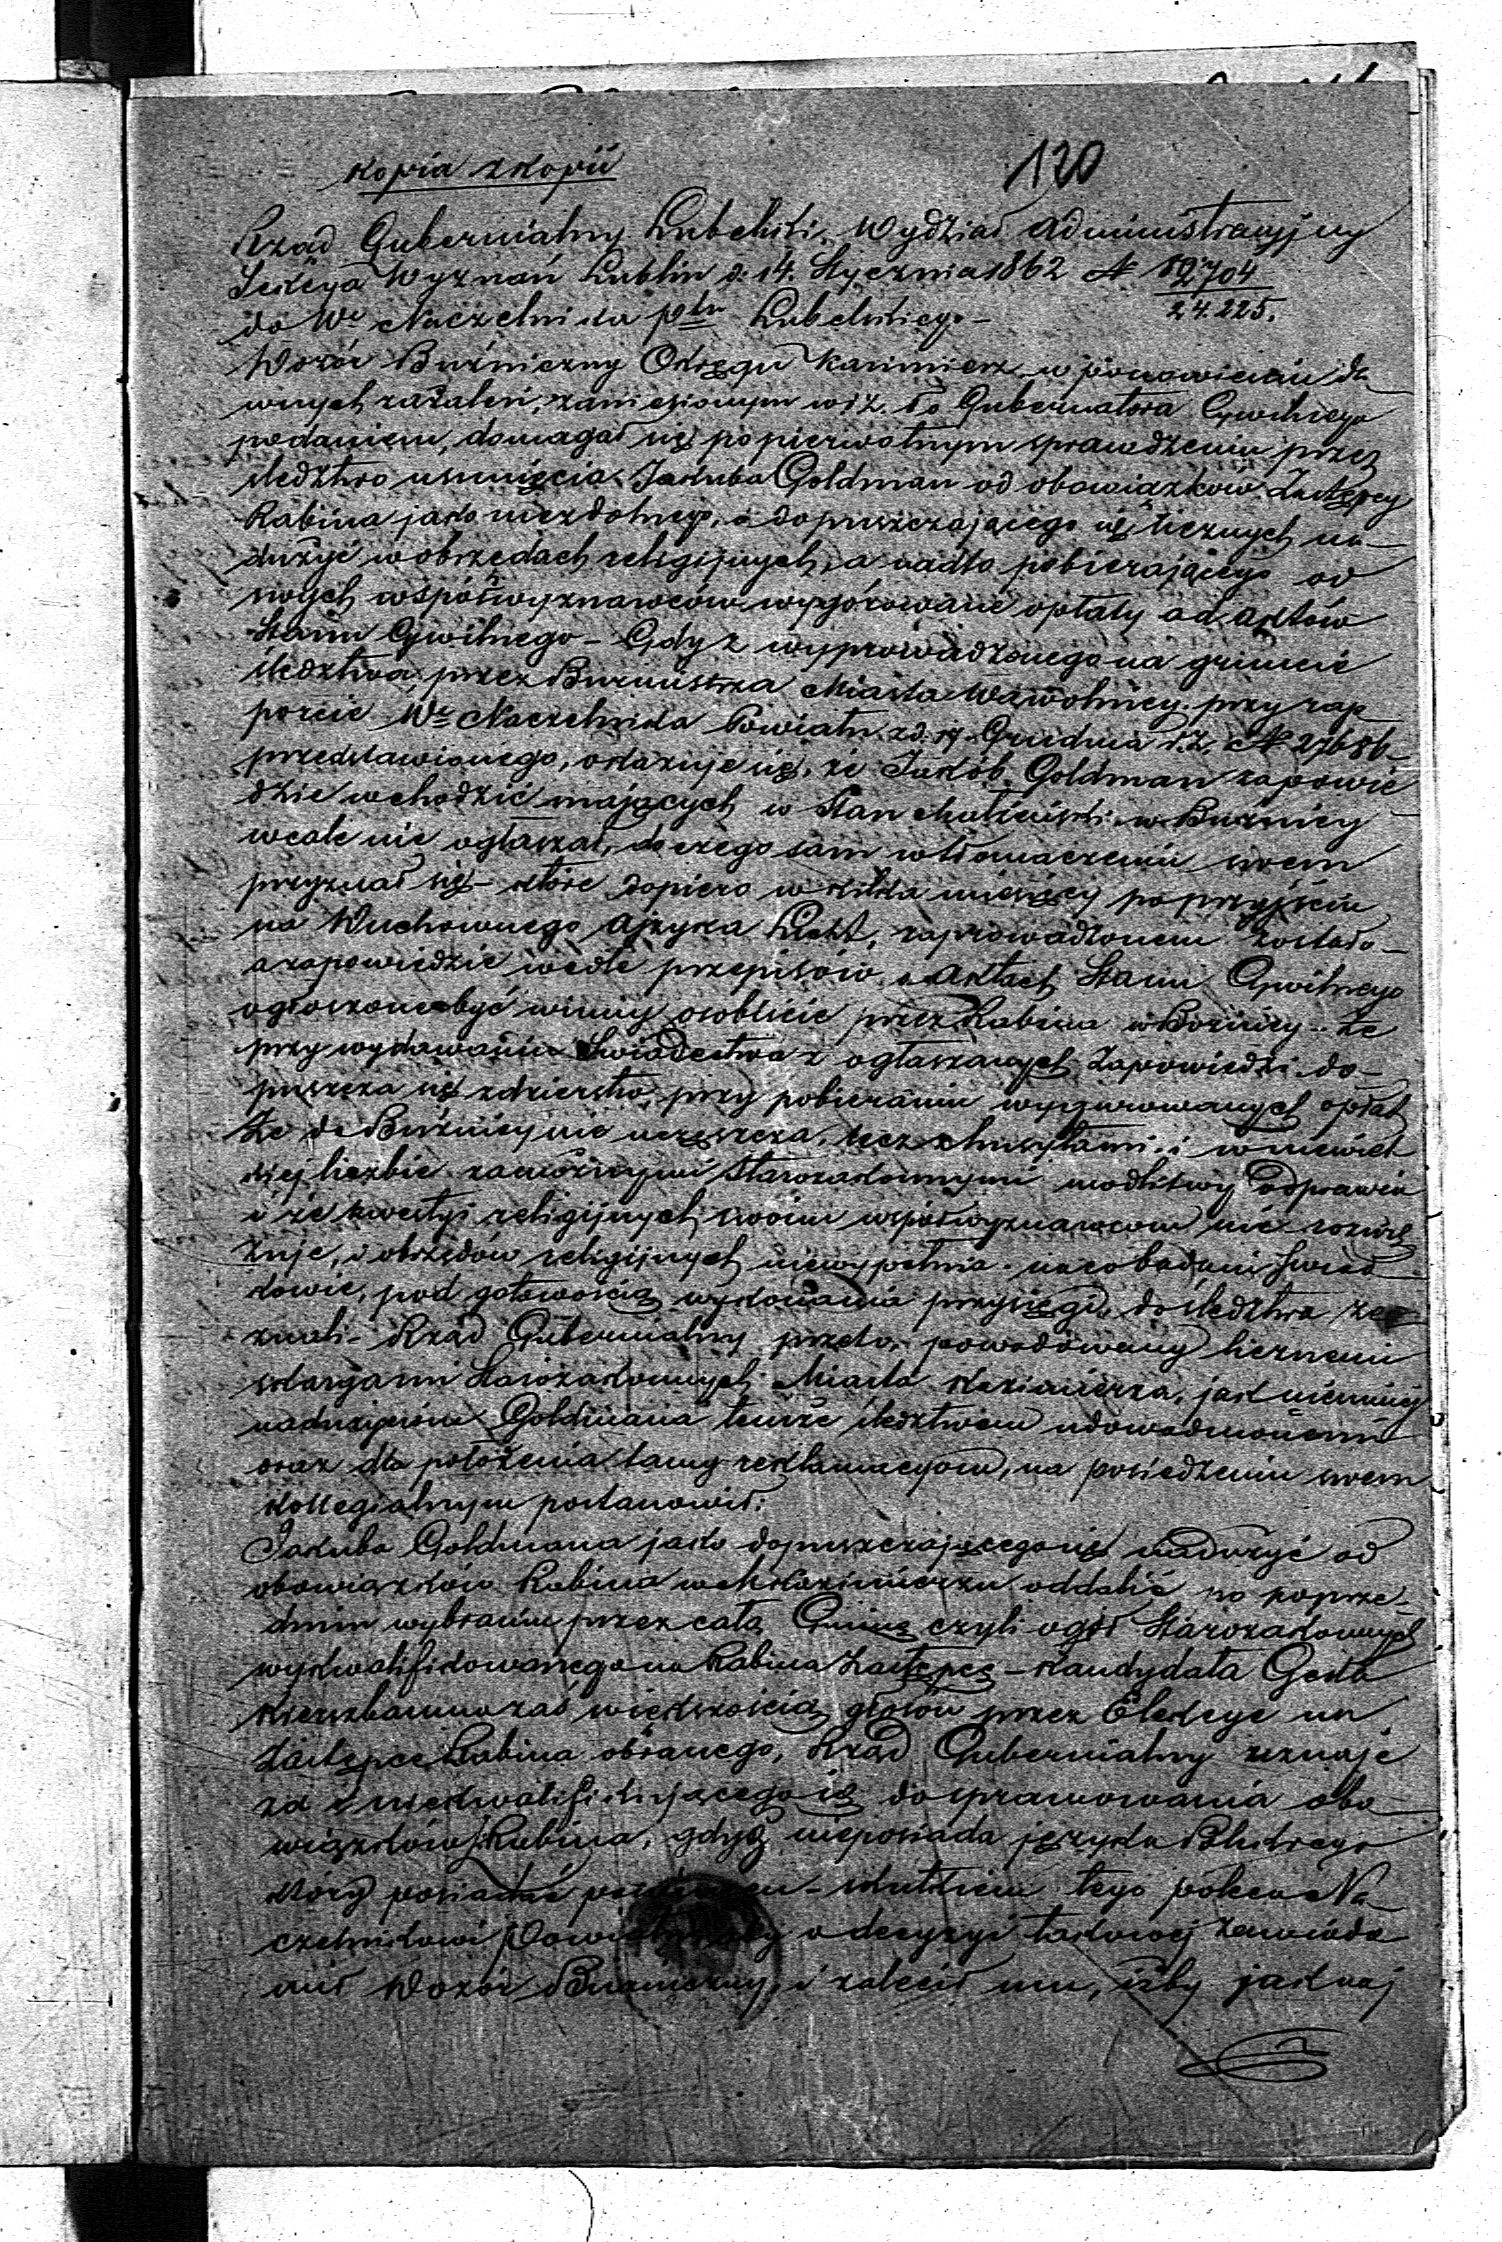 Kopia z Kopii
120
Rząd Gubernialny Lubelski. Wydział Administracyjny
Sekcya Wyznań Lublin d. 14. Stycznia 1862 N 12704
24.225.
do We Naczelnika ptu Lubelskiego -
Dozór Bużniczny Okręgu Kazimierz w ponowieniu da
wnych zażaleń, zaniesionym w r. z. do Gubernatora Cywilnego
podaniem, domagał się po pierwotnym sprawdzeniu przez
śledztwo usunięcia Jakuba Goldman od obowiązków Zastępcy
Rabina jako niezdolnego, i dopuszczającego się licznych na-
dużyć w obrzędach religijnych, a nadto pobierającego od
swych współwyznawców wygórowane opłaty od Aktów
Stanu Cywilnego - Gdy z wyprowadzonego na gruncie
śledztwa, przez Burmistrza Miasta Wąwolnicy. przy rap-
porcie We Naczelnika Powiatu z d. Grudnia r. z. N 27686-
przedstawionego, okazuje się, że Jakób Goldman zapowie
dzie wchodzić mających w Stan Małżeński w Bużnicy
wcale nie ogłaszał, do czego sam w tłomaczeniu swem
przyznał się - które dopiero w kilka miesięcy po przyjściu
na Duchownego Ajzyka Licht, zaprowadzonem zostało -
a zapowiedzie wedle przepisów o Aktach Stanu Cywilnego
ogłoszone być winny osobiście przez Rabina w Bożnicy. - że
przy wydawaniu Świadectwa z ogłaszanych Zapowiedzi do-
puszcza się zdzierstw przy pobieraniu wygurowanych opłat
że do Bużnicy nie uczęszcza, lecz z i w niewiel
kiej liczbie zamożnymi Starozakonnymi modlitwy odprawia
i że kwestyi religijnych swoim współwyznawcom nie rozwią
zuje, i obrzędów religijnych niewypełnia. na co badani Świad-
kowie, pod gotowością wykonania przysięgi, do śledztwa ze-
znali - Rząd Gubernialny przeto, powodowany licznemi
skargami Starozakonnych Miasta Kazimierza, jak niemniej
nadużyciem Goldmana temże śledztwem udowodnionemi
oraz dla położenia tamy reklamacyom, na posiedzeniu swem
kollegialnym postanowił:
Jakuba Goldmana jako dopuszczającego się nadużyć od
obowiązków Rabina w M. Kazimierzu oddalić po poprze-
dnim wybraniu przez całą Gminę czyli ogół Starozakonnych
wykwalifikowanego na Rabina Zastępcę - Kandydata
Kierszbauma zaś większością głosów przez Elekcye na
Zastępcę Rabina obranego, Rząd Gubernialny uznaje
za niekwalifikującego się do sprawowania obo-
wiązków Rabina, gdyż nieposiada języka Polskiego
który posiadać - skutkiem tego poleca Na
czelnikowi Powiatu aby o decyzyi takowej zawiado
mił Dozór Bużniczny, i zalecił mu, iżby jaknaj